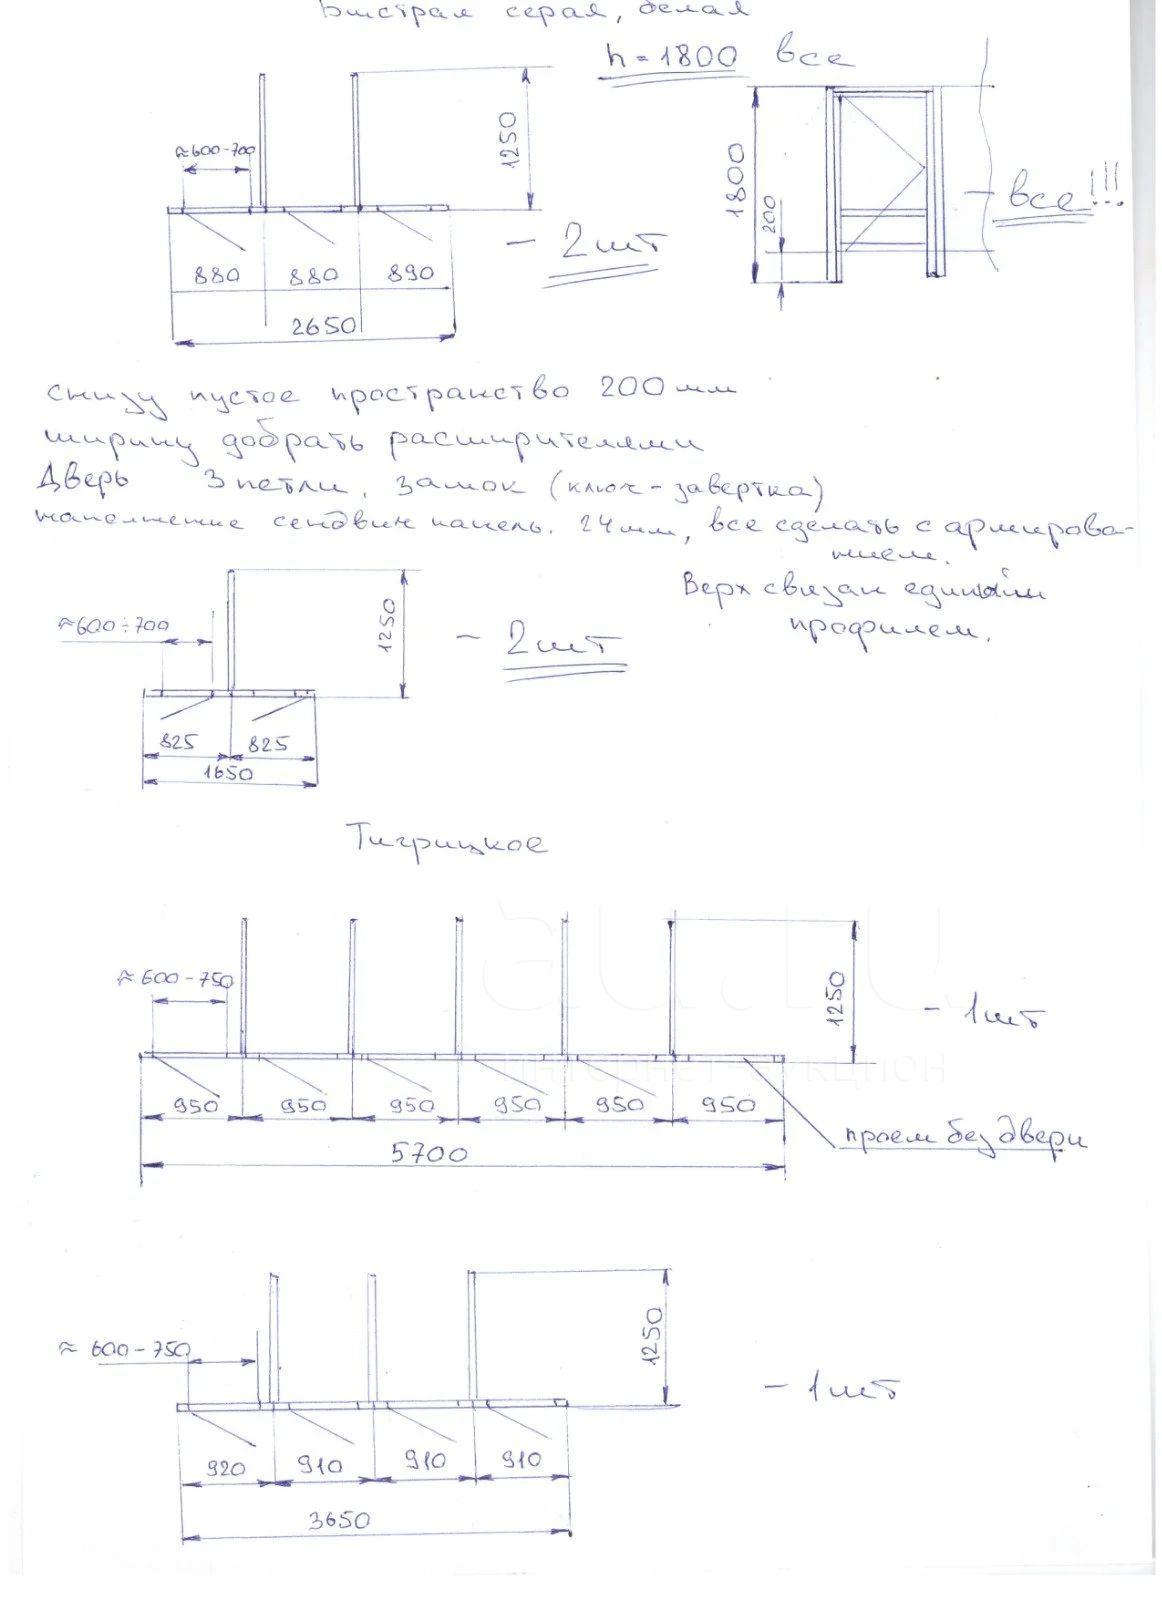 Быстрая серая, белая
h = 1800 все
≈600-700
1250
1800
200
- все!!!
- 2шт
880 880 890
2650
снизу пустое пространство 200мм
ширину добрать расширителями
Дверь 3 петли, замок (ключ-завертка)
наполнение сендвич панель. 24мм, все сделать с армирова-
нием.
Верх связан единым
профилем.
≈600÷700
1250
- 2шт
825 825
1650
Тигрицкое
≈600-750
1250
- 1шт
950 950 950 950 950 950
проем без двери
5700
≈ 600-750
1250
- 1шт
920 910 910 910
3650
au.ru
интернет-аукцион